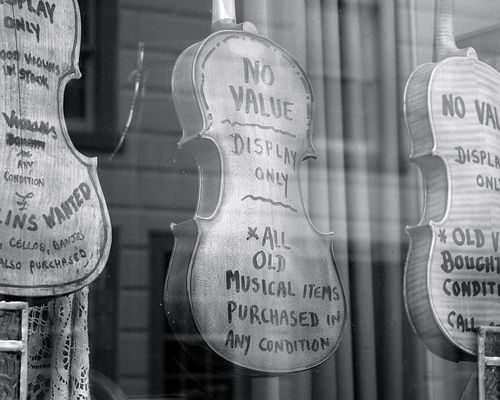 DISPLAY
ONLY
GOOD VIOLINS
IN STOCK
VIOLINS
BOUGHT
IN
ANY
CONDITION
£
LINS WANTED
, CELLOS, BANJOS
ALSO PURCHASED
NO
VALUE
DISPLAY
ONLY
*ALL
OLD
MUSICAL ITEMS
PURCHASED IN
ANY CONDITION
NO VAL
DISPLA
ONL
*OLD V
BOUGHT
CONDITI
CALL